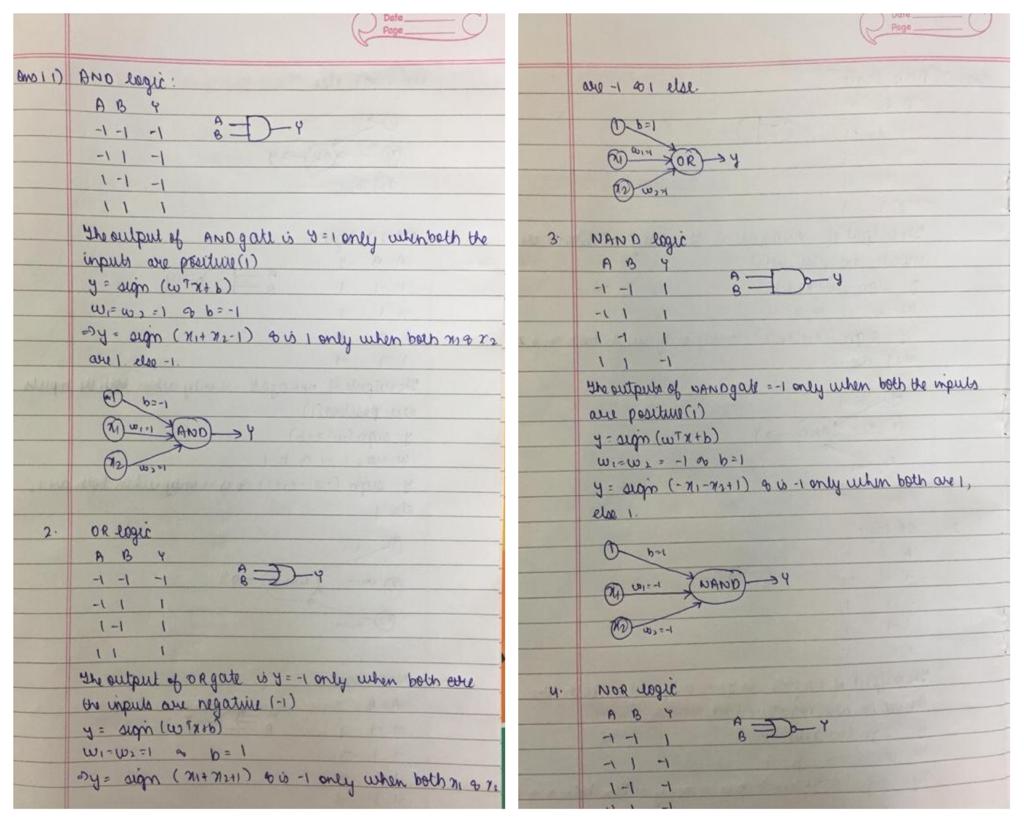 Date
Page
Ans 1 1) AND logic:
A B Y
-1 -1 -1
-1 1 -1
1 -1 -1
1 1 1
A
B
Y
The output of AND gate is Y=1 only when both the
inputs are positive (1)
y = sign (wᵀx+b)
w₁=w₂=1 & b=-1
⇒y= sign (x₁+x₂-1) & is 1 only when both x₁ & x₂
are 1 else -1.
1 b=-1
x₁ w₁=1 AND Y
x₂ w₂=1
2. OR logic
A B Y
-1 -1 -1
-1 1 1
1 -1 1
1 1 1
A
B
Y
The output of OR gate is Y=-1 only when both
the inputs are negative (-1)
y= sign (wᵀx+b)
w₁=w₂=1 & b=1
⇒y= sign (x₁+x₂+1) & is -1 only when both x₁ & x₂
Date
Page
are -1 & 1 else.
1 b=1
x₁ w₁=1 OR Y
x₂ w₂=1
3. NAND logic
A B Y
-1 -1 1
-1 1 1
1 -1 1
1 1 -1
A
B
Y
The outputs of NAND gate = -1 only when both the inputs
are positive (1)
y= sign (wᵀx+b)
w₁=w₂= -1 & b=1
y= sign (-x₁-x₂+1) & is -1 only when both are 1,
else 1.
1 b=1
x₁ w₁=-1 NAND Y
x₂ w₂=-1
4. NOR logic
A B Y
-1 -1 1
-1 1 -1
1 -1 -1
1 1 -1
A
B
Y